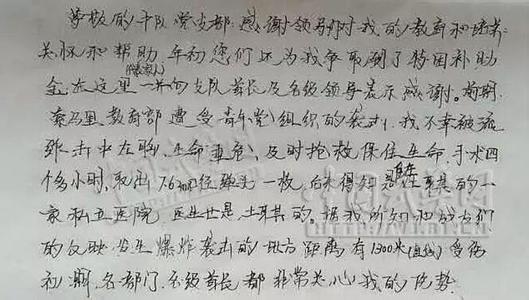 尊敬的斗队党支部：感谢领导对我的教育和培养
关怀和帮助年初您们还为我争取到了特困补助
金，在这里一并向支队首长及各级领导表示感谢。前期
索马里教育部遭受青年党组织的袭击，我不幸被流
弹击中左胸，生命垂危，及时抢救，保住生命，手术四
个多小时，取出7.62mm弹头一枚，后来得知是在土耳其的一
家私立医院，医生也是土耳其的。据我所知和战友们
的反映，发生爆炸袭击的地方距离有1300米(直线)受伤
初期，各部门、各级首长都非常关心我的伤势